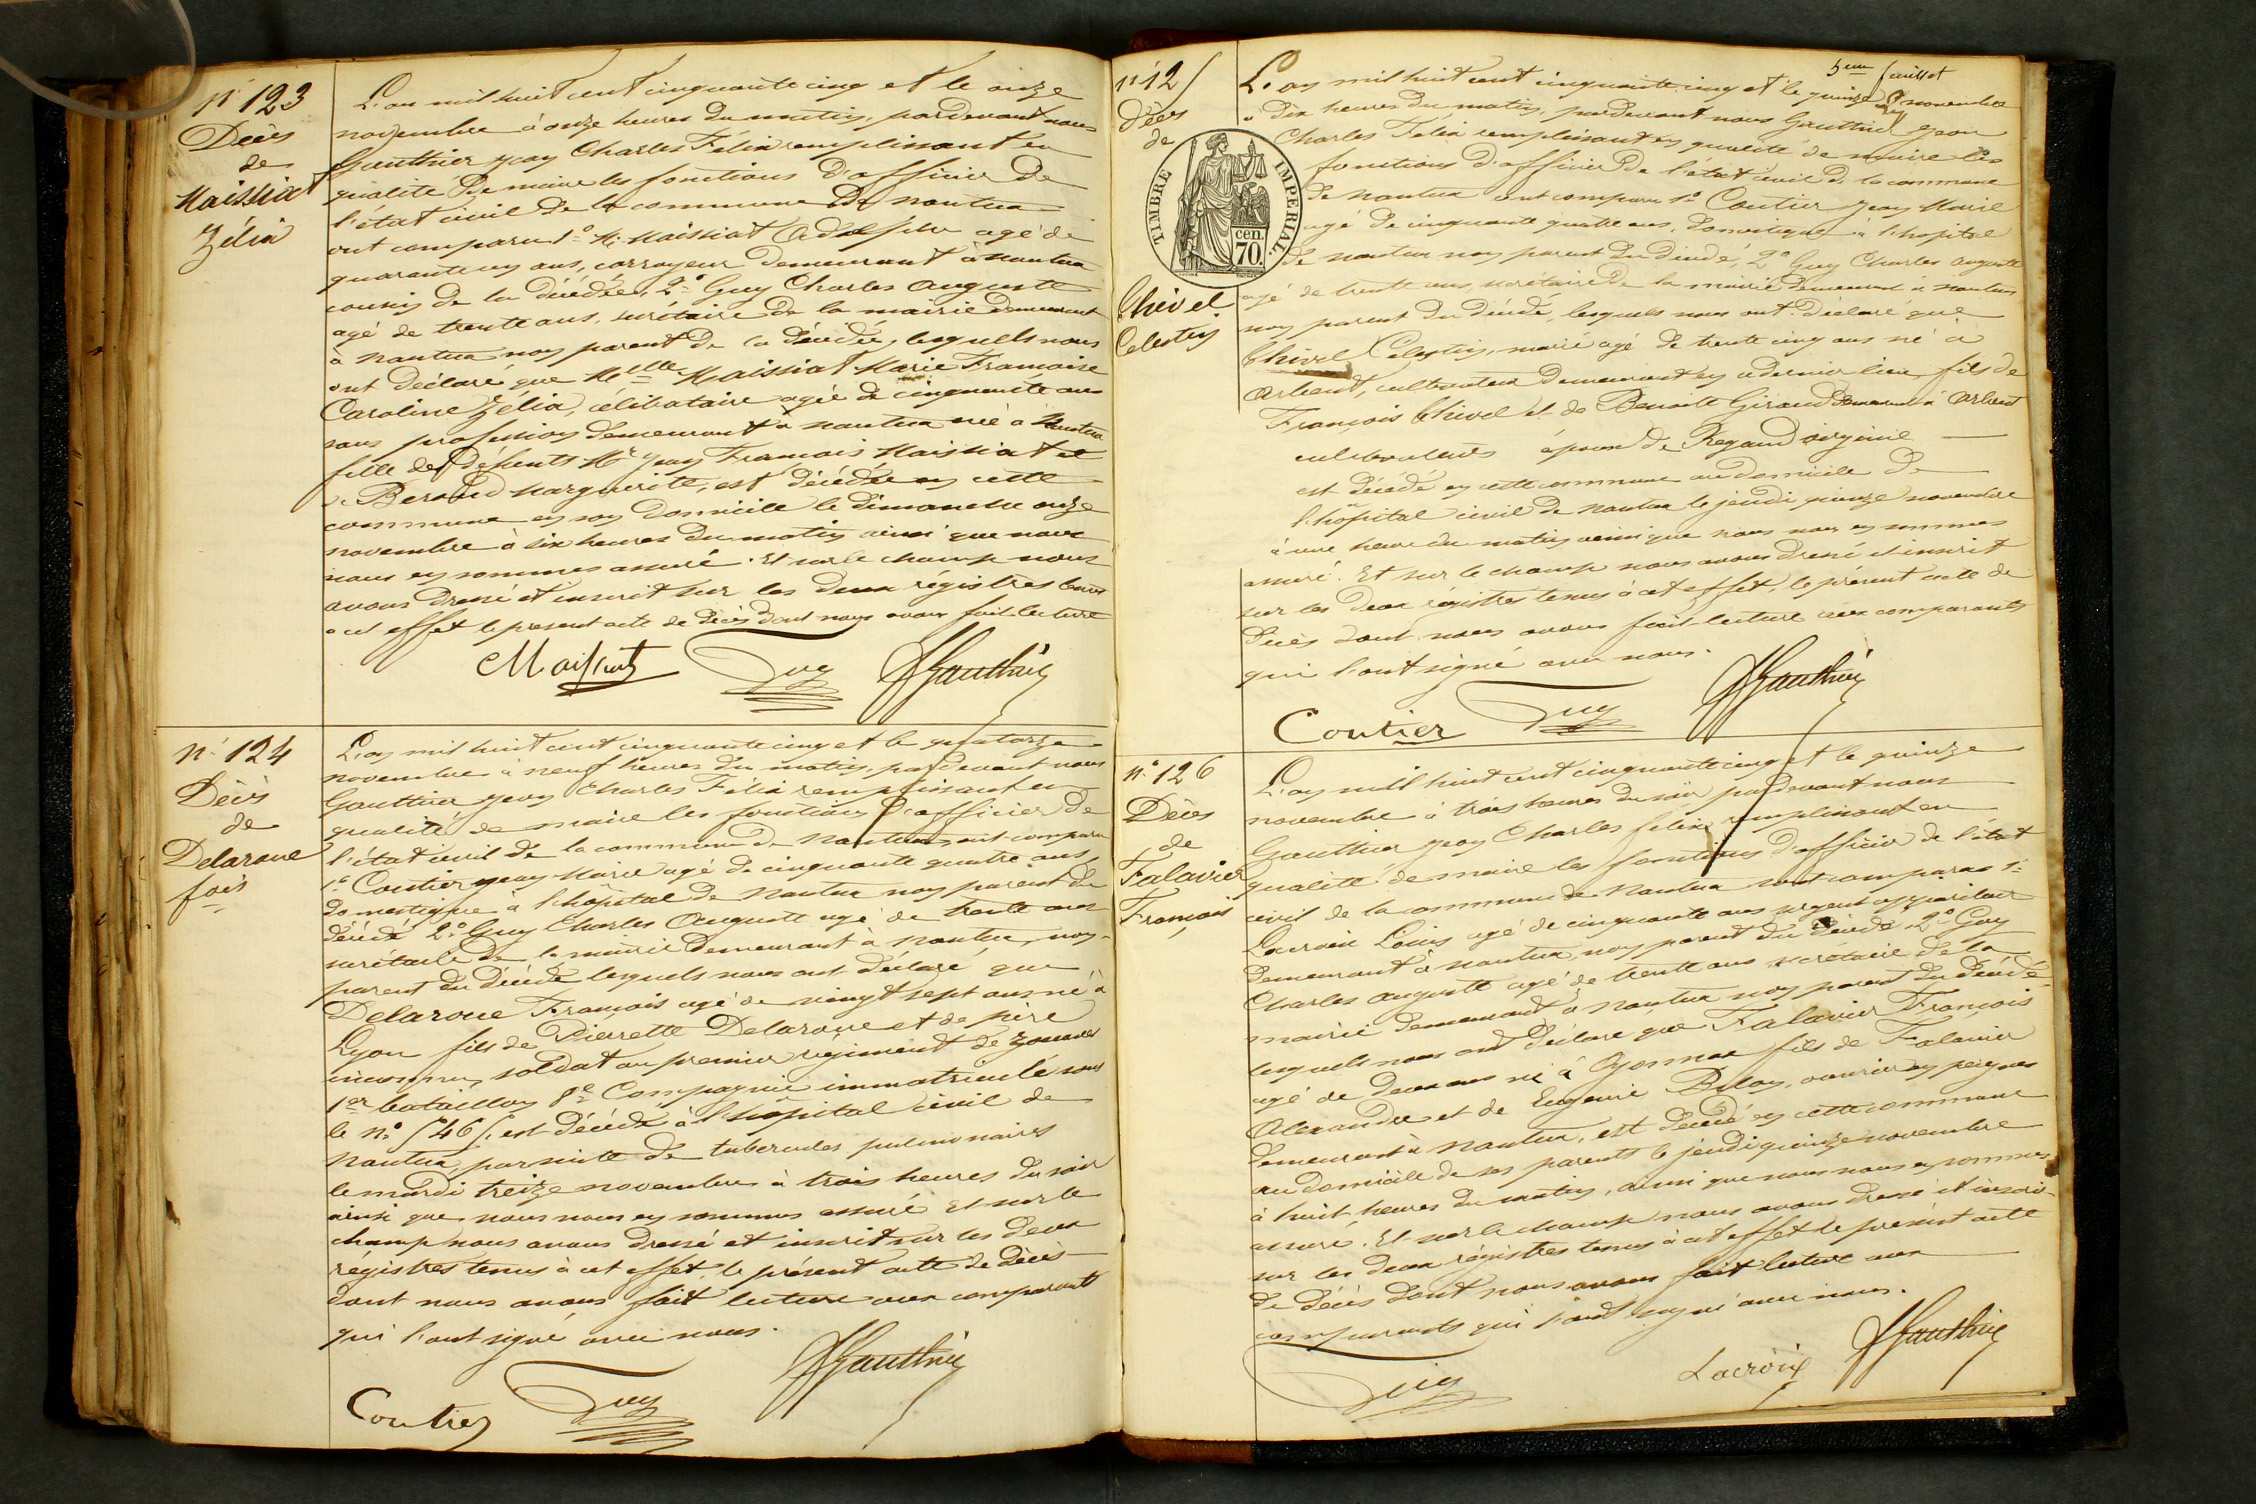 n° 123
Décès
de
Maissiat
Zélia
L'an mil huit cent cinquante cinq et le onze
novembre à onze heures du matin, pardevant nous
Gauthier Jean Charles Félix remplissant en
qualité de maire les fonctions d'officier de
l'état civil de la commune de Nantua
ont comparu 1° M. Maissiat Adolphe agé de
quarante cinq ans, corroyeur demeurant à Nantua
cousin de la décédée, 2° Guy Charles Auguste
agé de trente ans, secrétaire de la mairie demeurant
à Nantua non parent de la décédée, lesquels nous
ont déclaré que Melle Maissiat Marie Françoise
Caroline Zélia, célibataire agée de cinquante ans
sans profession demeurant à Nantua née à Nantua
fille des défunts Mr Jean François Maissiat et
Beraud Marguerite, est décédée en cette
commune en son domicile le dimanche onze
novembre à six heures du matin ainsi que nous
nous en sommes assuré. Et sur le champ nous
avons dressé et inscrit sur les deux régistres tenus
a cet effet le present acte de décès dont nous avons fait lecture
Maissiat Guy JGauthier
n° 124
Décès
de
Delaroue
fois
L'an mil huit cent cinquante cinq et le quatorze
novembre à neuf heures du matin, pardevant nous
Gauthier Jean Charles Félix remplissant en
qualité de maire les fonctions d'officier de
l'état civil de la commune de Nantua ont comparu
1° Coutier Jean Marie agé de cinquante quatre ans
domestique à l'hôpital de Nantua non parent du
décédé 2° Guy Charles Auguste agé de trente ans
secrétaire de la mairie demeurant à Nantua, non
parent du décédé lesquels nous ont déclaré que
Delaroue François agé de vingt sept ans né à
Lyon fils de Pierrette Delaroue et de père
inconnu, soldat au premier régiment de zouaves
1er bataillon 8e Compagnie immatriculé sous
le n° 5465, est décédé à l'hôpital civil de
Nantua, par suite de tubercules pulmonaires
le mardi treize novembre à trois heures du soir
ainsi que nous nous en sommes assuré et sur le
champ nous avons dressé et inscrit sur les deux
régistres tenus à cet effet, le présent acte de décès
dont nous avons fait lecture aux comparants
qui l'ont signé avec nous.
Coutier Guy JGauthier
5eme feuillet
n° 125
Décès
de
TIMBRE IMPERIAL
70. cen.
Chivel
Celestin
L'an mil huit cent cinquante cinq et le quinze novembre
à dix heures du matin, pardevant nous Gauthier Jean
Charles Félix remplissant en qualité de maire les
fonctions d'officier de l'état civil de la commune
de Nantua ont comparu 1° Coutier Jean Marie
agé de cinquante quatre ans, domestique à l'hopital
de Nantua non parent du décédé, 2° Guy Charles Auguste
agé de trente ans, secrétaire de la mairie demeurant à Nantua
non parent du décédé, lesquels nous ont déclaré que
Chivel Celestin, marié agé de trente cinq ans né à
Arbent, cultivateur demeurant en ce dernier lieu, fils de
François Chivel et de Benoite Giraud demeurant à Arbent
cultivateurs époux de Regaud virginie
est décédé en cette commune au domicile de
l'hôpital civil de Nantua le jeudi quinze novembre
à une heure du matin ainsi que nous nous en sommes
assuré. Et sur le champ nous avons dressé et inscrit
sur les deux régistres tenus à cet effet, le présent acte de
décès dont nous avons fait lecture aux comparants
qui l'ont signé avec nous.
Coutier Guy JGauthier
n° 126
Décès
de
Falavier
François
L'an mil huit cent cinquante cinq et le quinze
novembre à trois heures du soir pardevant nous
Gauthier Jean Charles félix remplissant en
qualité de maire les fonctions d'officier de l'état
civil de la commune de Nantua sont comparus 1°
Lacroix Louis agé de cinquante ans sergent appariteur
demeurant à Nantua non parent du décédé 2° Guy
Charles Auguste agé de trente ans secrétaire de la
mairie demeurant à Nantua non parent du décédé
lesquels nous ont déclaré que Falavier François
agé de deux ans né à Oyonnax fils de Falavier
Alexandre et de Eugenie, ouvrier en peignes
demeurant à Nantua, est décédé en cette commune
au domicile de ses parents le jeudi quinze novembre
à huit heures du matin, ainsi que nous nous en sommes
assuré. Et sur le champ nous avons dressé et inscrit
sur les deux régistres tenus à cet effet le présent acte
de décès dont nous avons fait lecture aux
comparants qui l'ont signé avec nous.
Guy Lacroix JGauthier